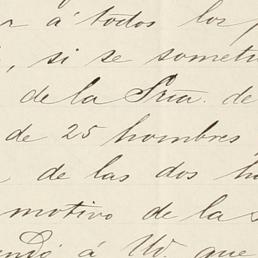 r á todos los p
, si se sometie
de la Sría. de
de 25 hombres
, de las dos h
motivo de la s
endó á W. que